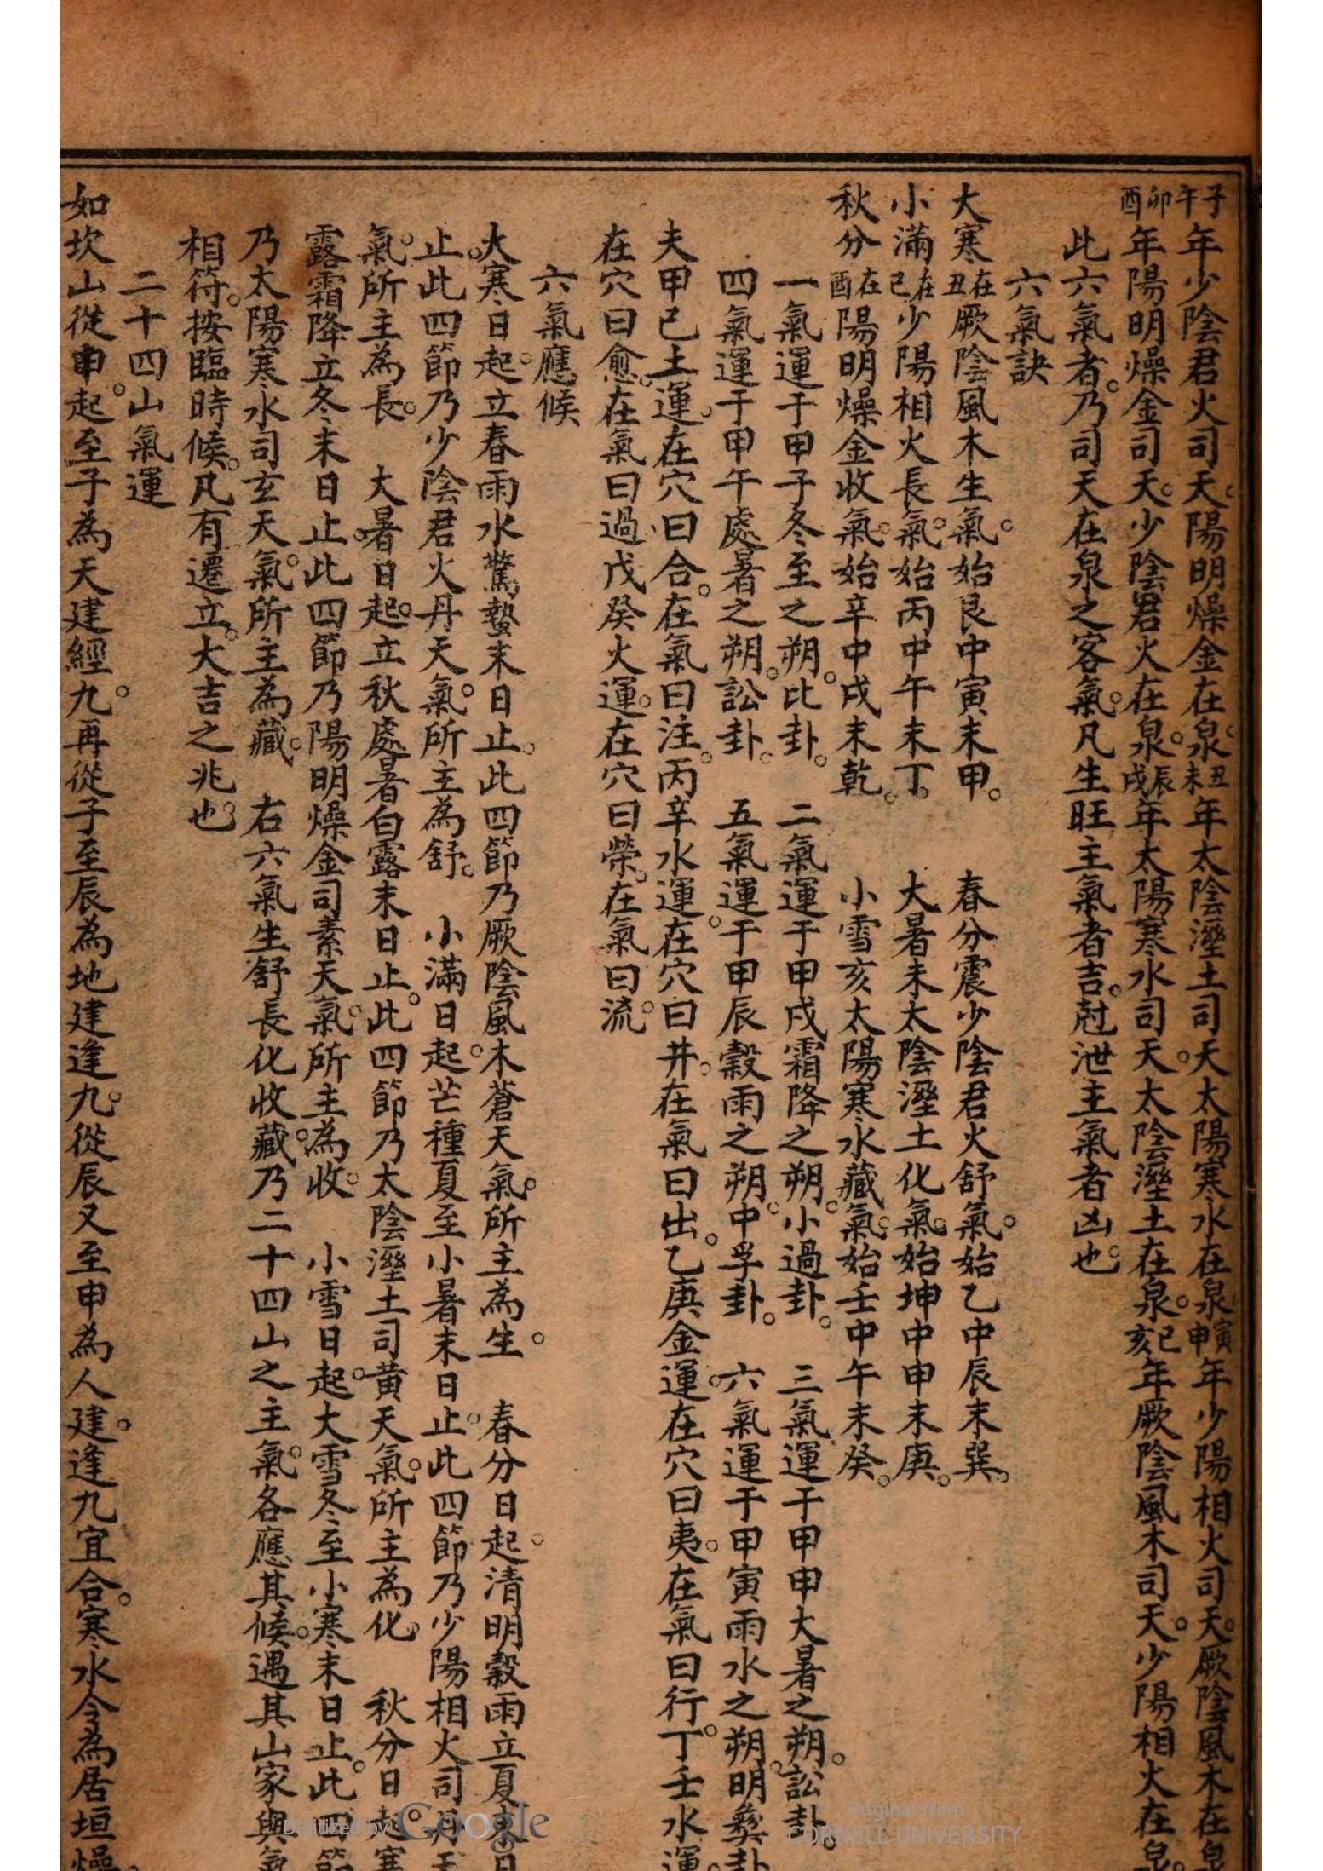 子午年少陰君火司天。陽明燥金在泉。丑未年太陰溼土司天太陽寒水在泉寅申年少陽相火司天。厥陰風木在泉
卯酉年陽明燥金司天。少陰君火在泉。辰戌年太陽寒水司天。太陰溼土在泉。巳亥年厥陰風木司天。少陽相火在泉。
此六氣者。乃司天在泉之客氣。凡生旺主氣者吉。尅泄主氣者凶也。
六氣訣
大寒在丑厥陰風木生氣。始艮中寅末甲。 春分震少陰君火舒氣。始乙中辰末巽。
小滿在巳少陽相火長氣。始丙中午末丁。 大暑未太陰溼土化氣。始坤中申末庚。
秋分在酉陽明燥金收氣。始辛中戌末乾。 小雪亥太陽寒水藏氣。始壬中午末癸。
一氣運于甲子冬至之朔。比卦。 二氣運于甲戌霜降之朔。小過卦。 三氣運于甲申大暑之朔。訟卦。
四氣運于甲午處暑之朔。訟卦。 五氣運于甲辰穀雨之朔。中孚卦。 六氣運于甲寅雨水之朔。明彝卦
夫甲己土運。在穴曰合。在氣曰注。丙辛水運在穴曰井。在氣曰出。乙庚金運。在穴曰夷。在氣曰行。丁壬水運。
在穴曰愈。在氣曰過戊癸火運。在穴曰榮。在氣曰流。
六氣應候
大寒日起。立春雨水驚蟄末日止。此四節乃厥陰風木蒼天氣。所主為生。 春分日起。清明穀雨立夏末日
止。此四節乃少陰君火丹天氣。所主為舒。 小滿日起。芒種夏至小暑末日止。此四節乃少陽相火司丹天
氣。所主為長。 大暑日起。立秋處暑白露末日止。此四節乃太陰溼土司黃天氣。所主為化。 秋分日起。寒
露霜降立冬末日止。此四節乃陽明燥金司素天氣。所主為收。 小雪日起。大雪冬至小寒末日止。此四節
乃太陽寒水司玄天氣。所主為藏。 右六氣生舒長化收藏。乃二十四山之主氣。各應其候。遇其山家與氣
相符。按臨時候。凡有遷立。大吉之兆也。
二十四山氣運
如坎山從申起。至子為天建經九。再從子至辰為地建逢九。從辰又至申為人建。逢九宜合。寒水令為居垣燥。
Digitized by Google
Original from
CORNELL UNIVERSITY